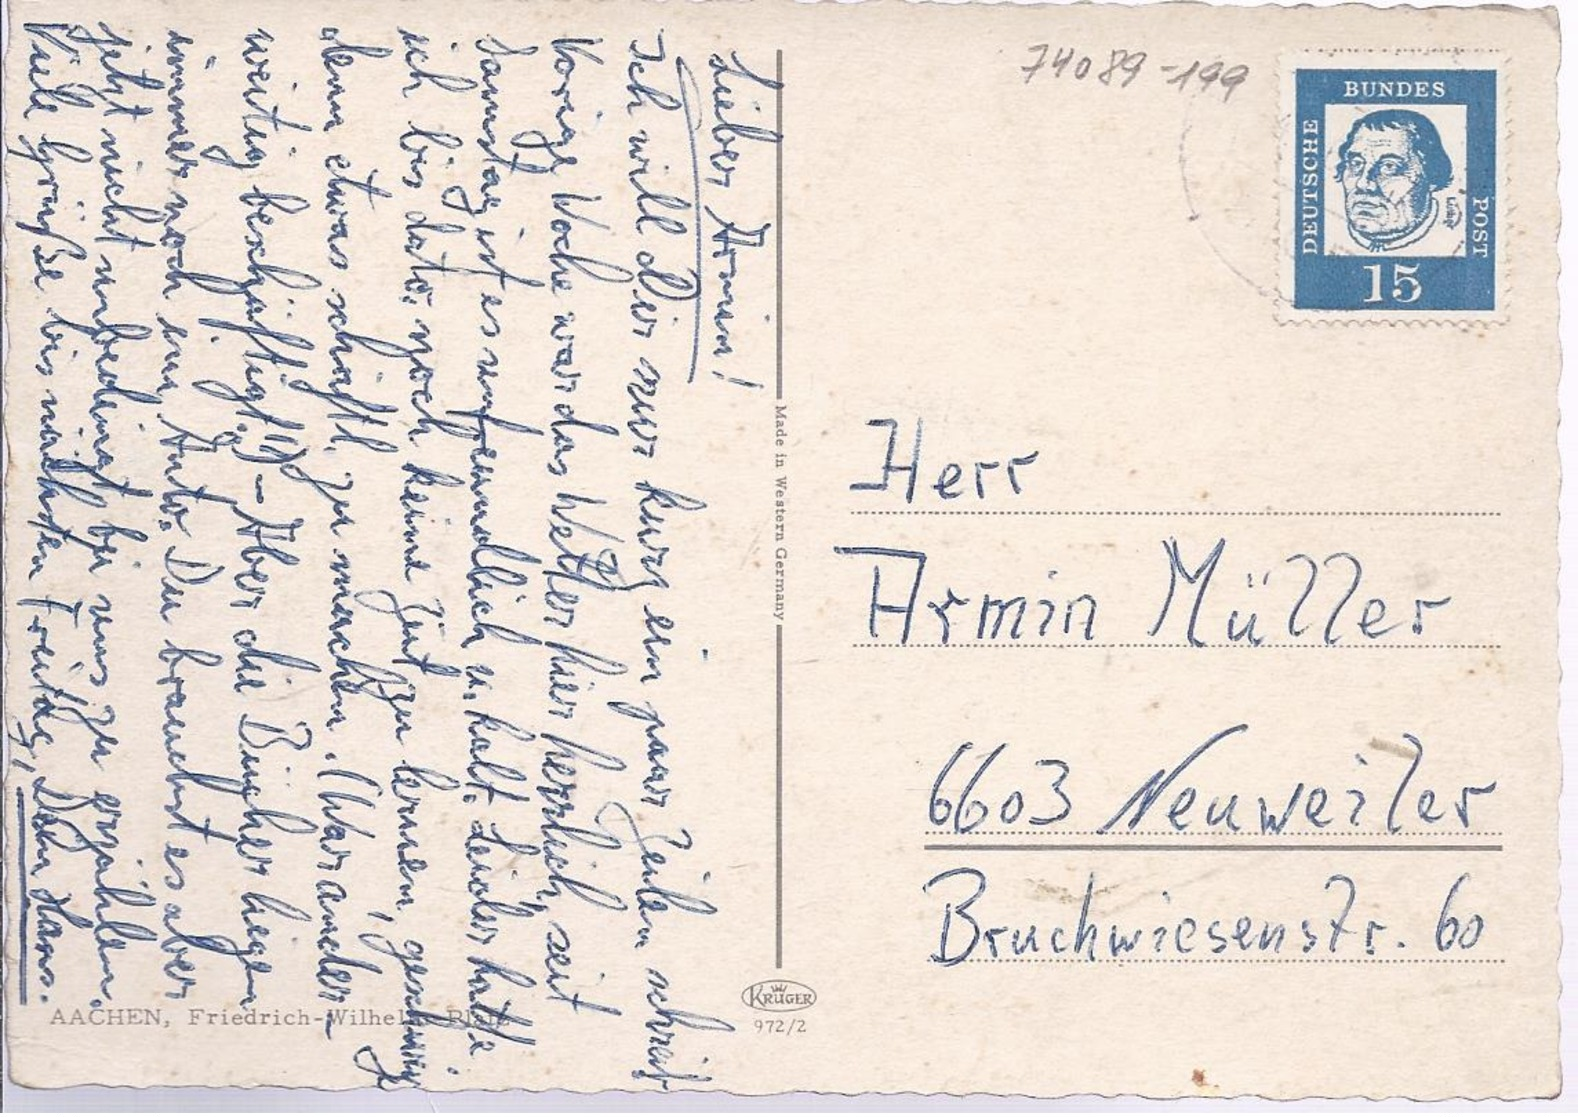 Lieber Armin!
Ich will Dir nur kurz ein paar Zeilen schreib.
Vorige Woche war das Wetter hier herrlich, seit
Samstag ist es unfreundlich u. kalt. Leider hatte
ich bis dato noch keine Zeit zu lernen, geschweige
denn etwas schriftl. zu machen. (War ander-
weitig beschäftigt!!) - Aber die Bücher liegen
immer noch im Auto. Du brauchst es aber
jetzt nicht unbedingt bei uns zu erzählen.
Viele Grüße bis nächsten Freitag, Dein Hans.
AACHEN, Friedrich-Wilhelm-Platz
Made in Western Germany
KRÜGER
972/2
74089-199
BUNDES
DEUTSCHE
POST
15
Herr
Armin Müller
6603 Neuweiler
Bruchwiesenstr. 60